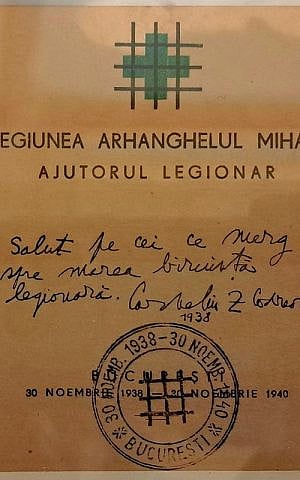 EGIUNEA ARHANGHELUL MIHA
AJUTORUL LEGIONAR
Salut pe cei ce merg
spre marea biruință
legionară. Corneliu Z Codrea
1938
BUCUREȘTI
30 NOEMBRIE 1938 — 30 NOEMBRIE 1940
30 NOEMB. 1938-30 NOEMB. 1940
BUCUREȘTI